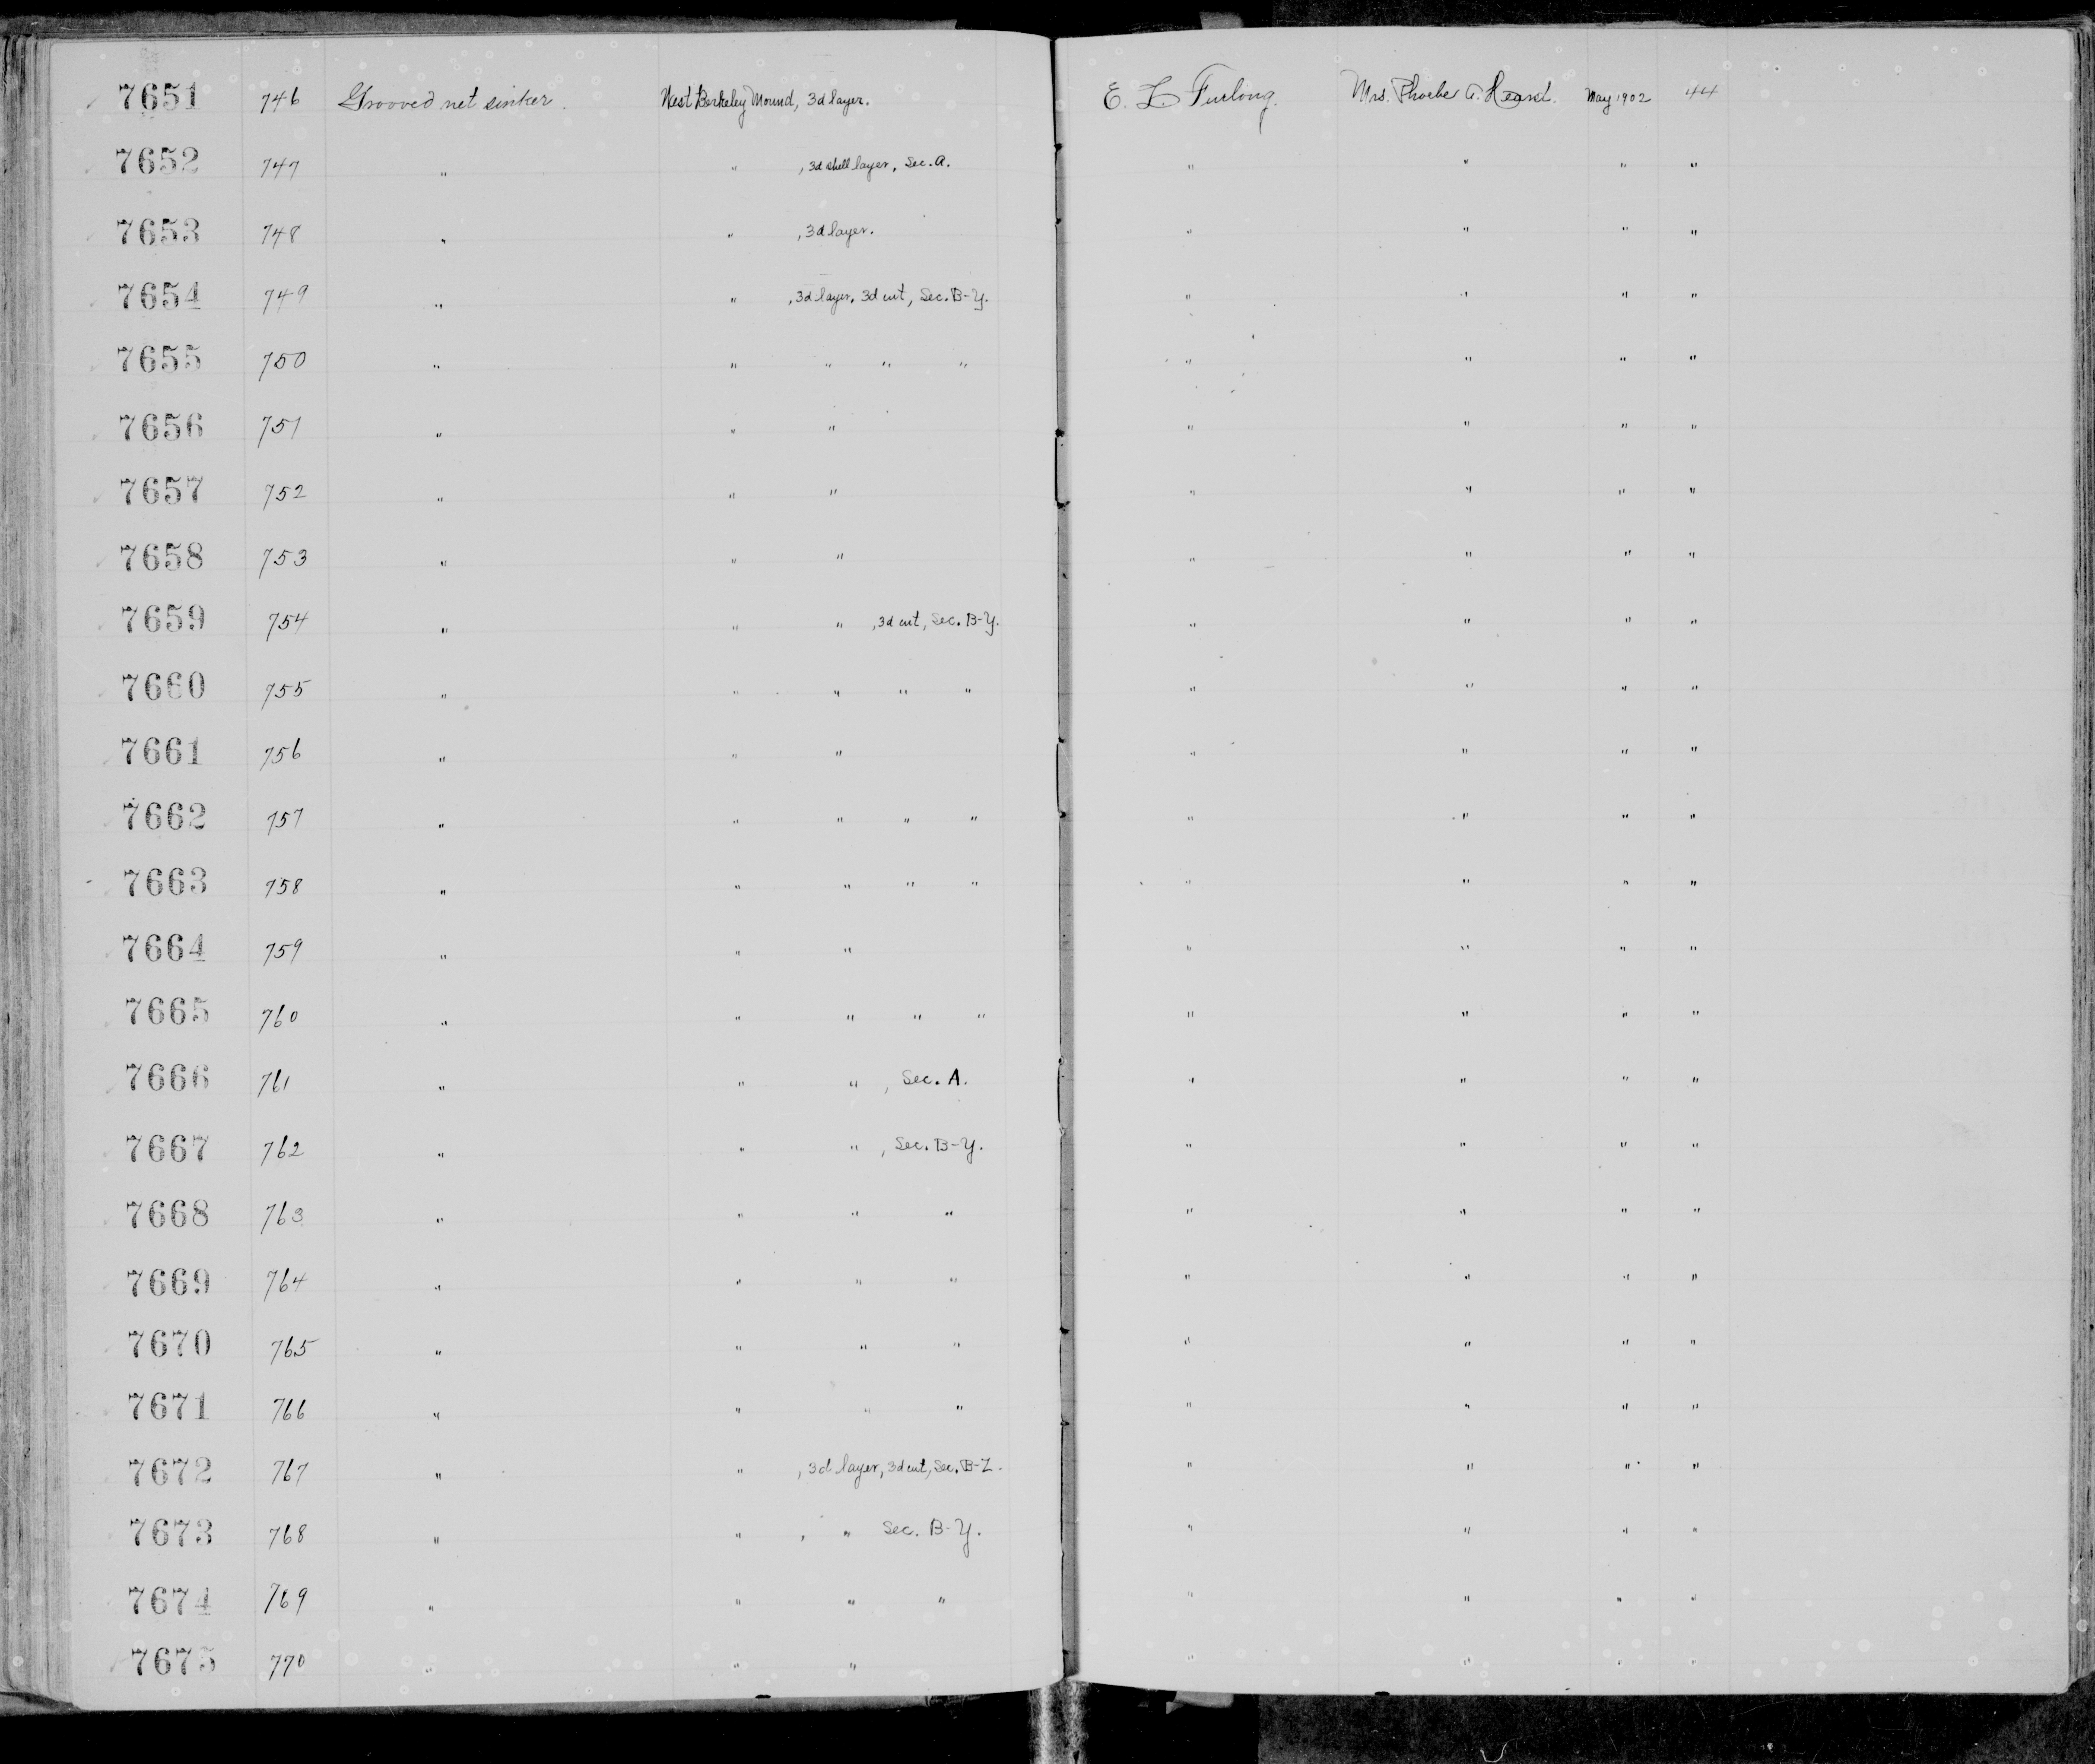 7651 746 Grooved net sinker. West Berkeley Mound, 3d layer. E. L. Furlong. Mrs. Phoebe A. Hearst. May 1902 44
7652 747 " " , 3d shell layer, Sec. A. " " " "
7653 748 " " , 3d layer. " " " "
7654 749 " " , 3d layer, 3d cut, Sec. B-Y. " " " "
7655 750 " " " " " " " " "
7656 751 " " " " " " "
7657 752 " " " " " " "
7658 753 " " " " " " "
7659 754 " " " , 3d cut, Sec. B-Y. " " " "
7660 755 " " " " " " " " "
7661 756 " " " " " " "
7662 757 " " " " " " " " "
7663 758 " " " " " " " " "
7664 759 " " " " " " "
7665 760 " " " " " " " " "
7666 761 " " " , Sec. A. " " " "
7667 762 " " " , Sec. B-Y. " " " "
7668 763 " " " " " " " "
7669 764 " " " " " " " "
7670 765 " " " " " " " "
7671 766 " " " " " " " "
7672 767 " " , 3d layer, 3d cut, Sec. B-Z. " " " "
7673 768 " " , " Sec. B-Y. " " " "
7674 769 " " " " " " " "
7675 770 " " " " " " "